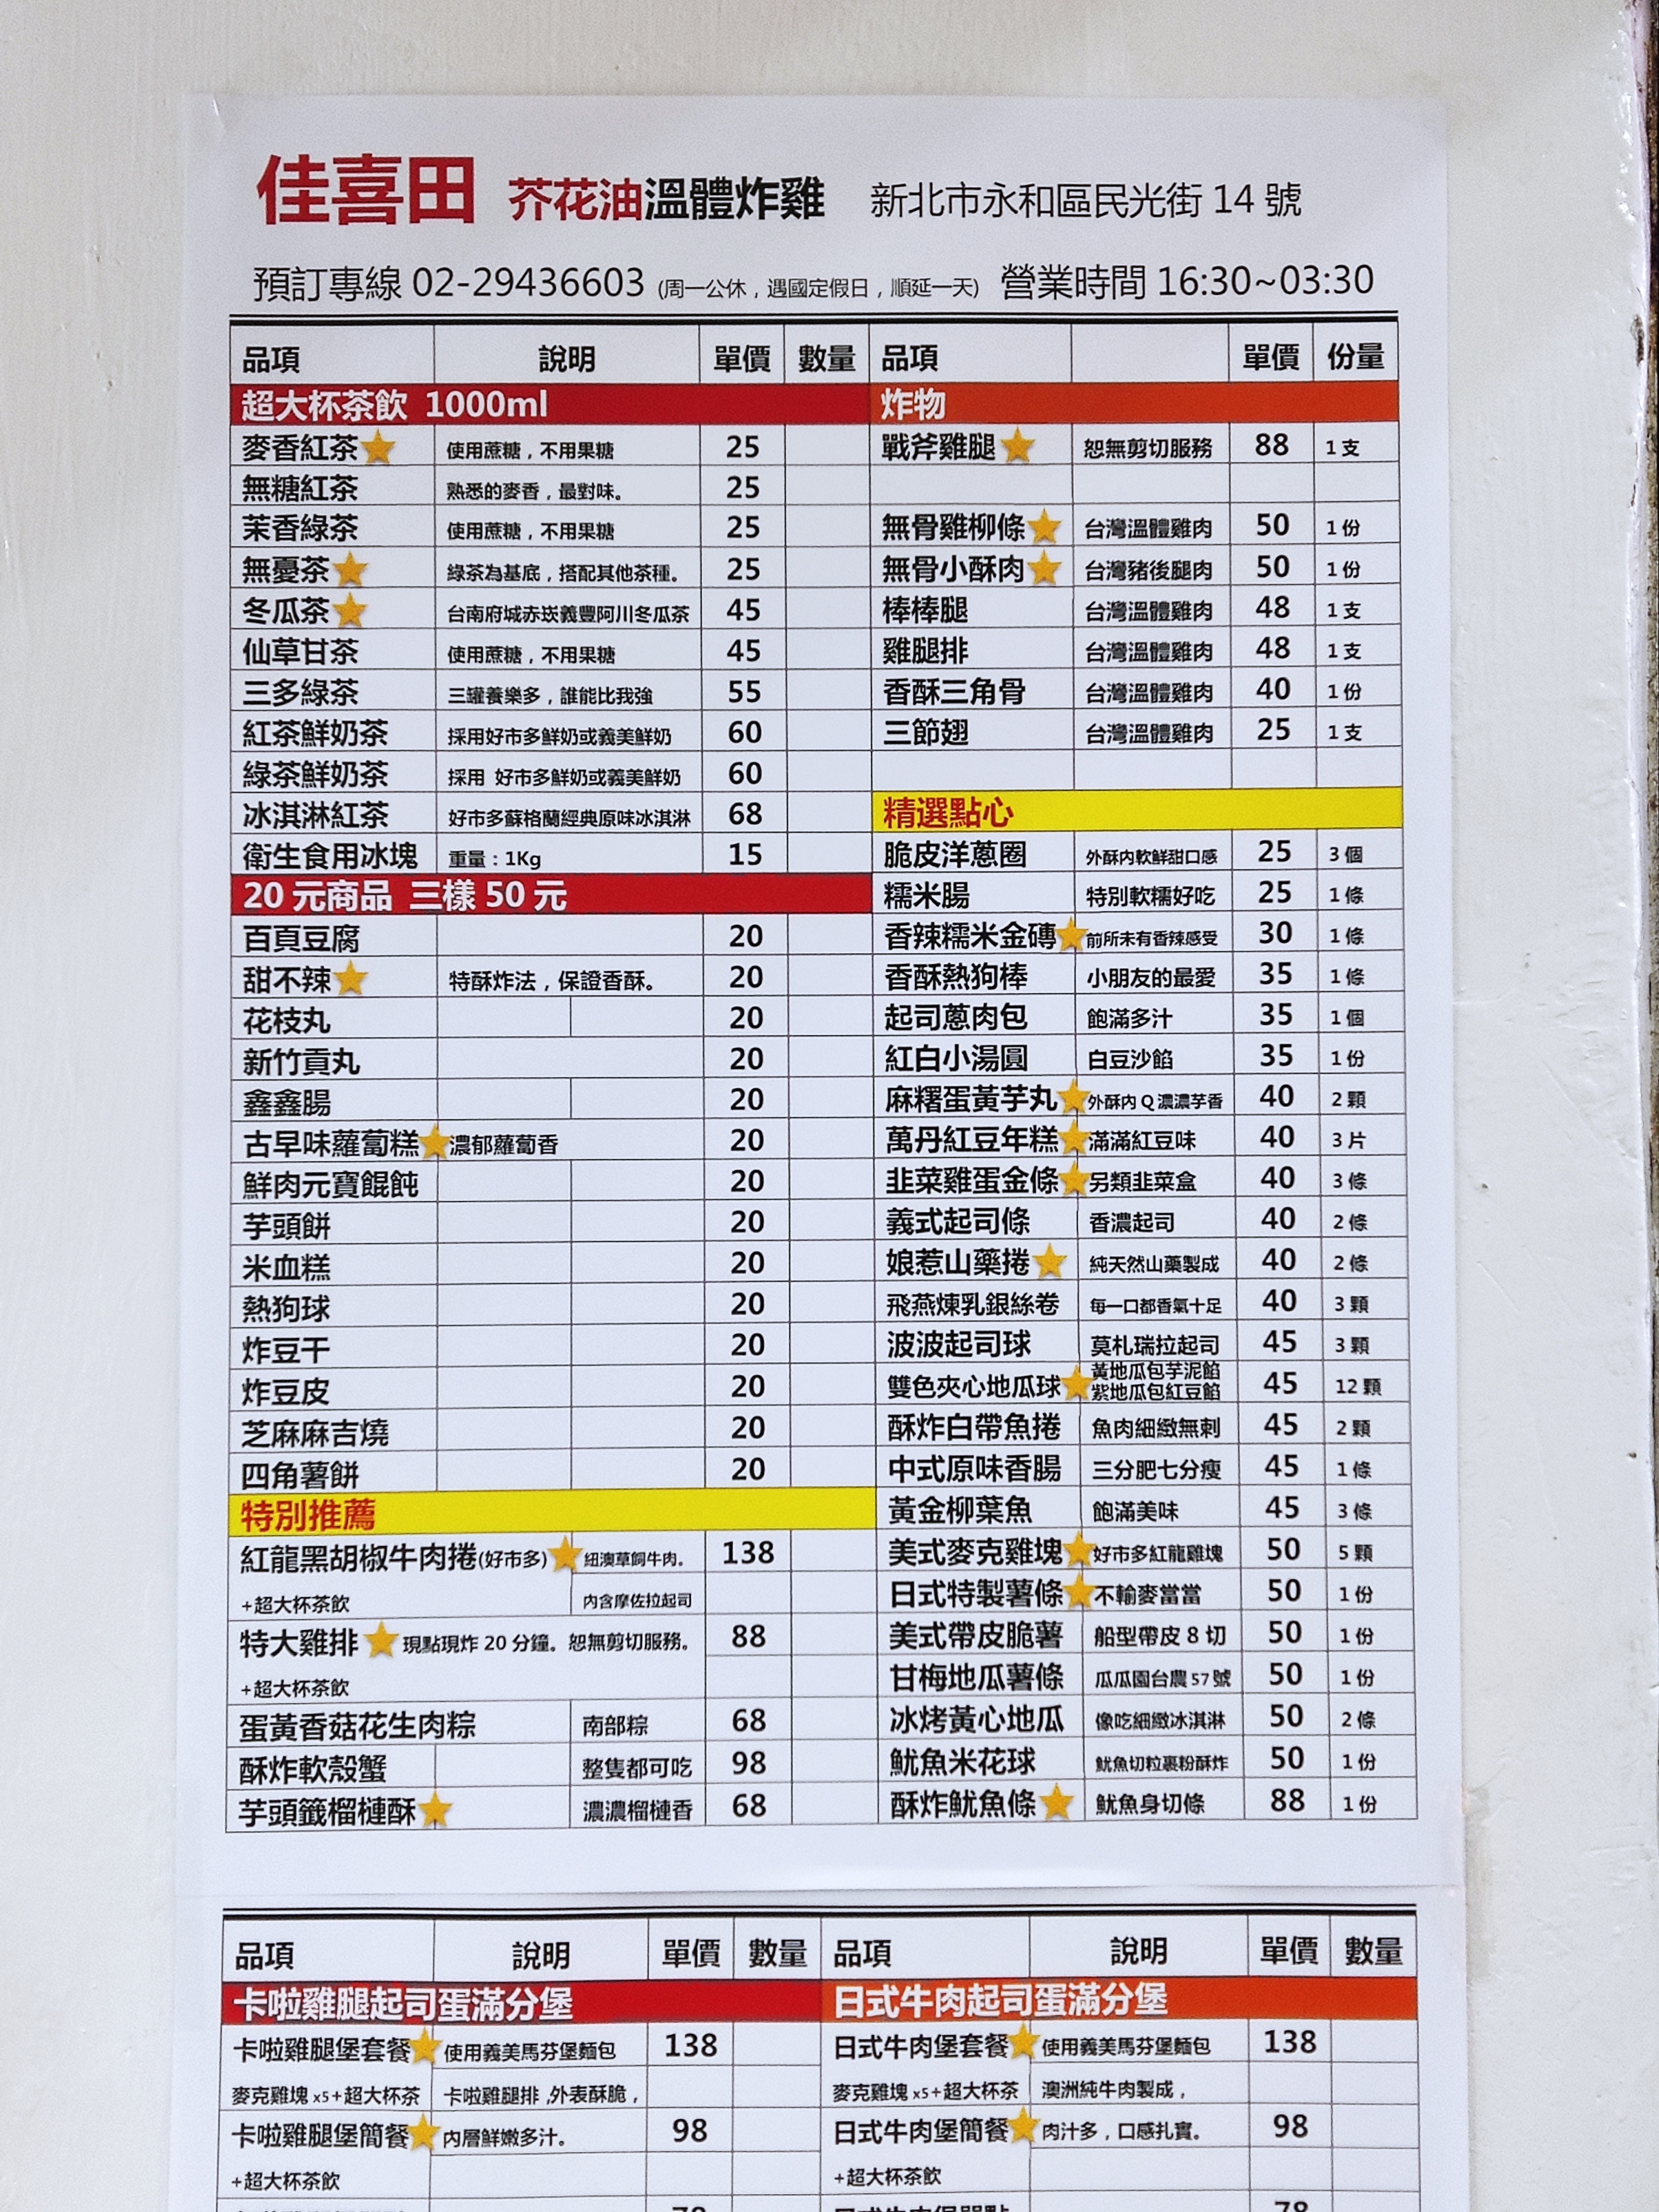 佳喜田 芥花油溫體炸雞 新北市永和區民光街 14 號
預訂專線 02-29436603 (周一公休，遇國定假日，順延一天) 營業時間 16:30~03:30
品項 說明 單價 數量 品項 單價 份量
超大杯茶飲 1000ml 炸物
麥香紅茶 使用蔗糖，不用果糖 25 戰斧雞腿 恕無剪切服務 88 1 支
無糖紅茶 熟悉的麥香，最對味。 25
茉香綠茶 使用蔗糖，不用果糖 25 無骨雞柳條 台灣溫體雞肉 50 1 份
無憂茶 綠茶為基底，搭配其他茶種。 25 無骨小酥肉 台灣豬後腿肉 50 1 份
冬瓜茶 台南府城赤崁義豐阿川冬瓜茶 45 棒棒腿 台灣溫體雞肉 48 1 支
仙草甘茶 使用蔗糖，不用果糖 45 雞腿排 台灣溫體雞肉 48 1 支
三多綠茶 三罐養樂多，誰能比我強 55 香酥三角骨 台灣溫體雞肉 40 1 份
紅茶鮮奶茶 採用好市多鮮奶或義美鮮奶 60 三節翅 台灣溫體雞肉 25 1 支
綠茶鮮奶茶 採用 好市多鮮奶或義美鮮奶 60
冰淇淋紅茶 好市多蘇格蘭經典原味冰淇淋 68 精選點心
衛生食用冰塊 重量：1Kg 15 脆皮洋蔥圈 外酥內軟鮮甜口感 25 3 個
20 元商品 三樣 50 元 糯米腸 特別軟糯好吃 25 1 條
百頁豆腐 20 香辣糯米金磚 前所未有香辣感受 30 1 條
甜不辣 特酥炸法，保證香酥。 20 香酥熱狗棒 小朋友的最愛 35 1 條
花枝丸 20 起司蔥肉包 飽滿多汁 35 1 個
新竹貢丸 20 紅白小湯圓 白豆沙餡 35 1 份
鑫鑫腸 20 麻糬蛋黃芋丸 外酥內 Q 濃濃芋香 40 2 顆
古早味蘿蔔糕 濃郁蘿蔔香 20 萬丹紅豆年糕 滿滿紅豆味 40 3 片
鮮肉元寶餛飩 20 韭菜雞蛋金條 另類韭菜盒 40 3 條
芋頭餅 20 義式起司條 香濃起司 40 2 條
米血糕 20 娘惹山藥捲 純天然山藥製成 40 2 條
熱狗球 20 飛燕煉乳銀絲卷 每一口都香氣十足 40 3 顆
炸豆干 20 波波起司球 莫札瑞拉起司 45 3 顆
炸豆皮 20 雙色夾心地瓜球 黃地瓜包芋泥餡 紫地瓜包紅豆餡 45 12 顆
芝麻麻吉燒 20 酥炸白帶魚捲 魚肉細緻無刺 45 2 顆
四角薯餅 20 中式原味香腸 三分肥七分瘦 45 1 條
特別推薦 黃金柳葉魚 飽滿美味 45 3 條
紅龍黑胡椒牛肉捲(好市多) 紐澳草飼牛肉。 138 美式麥克雞塊 好市多紅龍雞塊 50 5 顆
+超大杯茶飲 內含摩佐拉起司 日式特製薯條 不輸麥當當 50 1 份
特大雞排 現點現炸 20 分鐘。恕無剪切服務。 88 美式帶皮脆薯 船型帶皮 8 切 50 1 份
+超大杯茶飲 甘梅地瓜薯條 瓜瓜園台農 57 號 50 1 份
蛋黃香菇花生肉粽 南部粽 68 冰烤黃心地瓜 像吃細緻冰淇淋 50 2 條
酥炸軟殼蟹 整隻都可吃 98 魷魚米花球 魷魚切粒裹粉酥炸 50 1 份
芋頭籤榴槤酥 濃濃榴槤香 68 酥炸魷魚條 魷魚身切條 88 1 份
品項 說明 單價 數量 品項 說明 單價 數量
卡啦雞腿起司蛋滿分堡 日式牛肉起司蛋滿分堡
卡啦雞腿堡套餐 使用義美馬芬堡麵包 138 日式牛肉堡套餐 使用義美馬芬堡麵包 138
麥克雞塊 x5+超大杯茶 卡啦雞腿排 ,外表酥脆， 麥克雞塊 x5+超大杯茶 澳洲純牛肉製成，
卡啦雞腿堡簡餐 內層鮮嫩多汁。 98 日式牛肉堡簡餐 肉汁多，口感扎實。 98
+超大杯茶飲 +超大杯茶飲
78